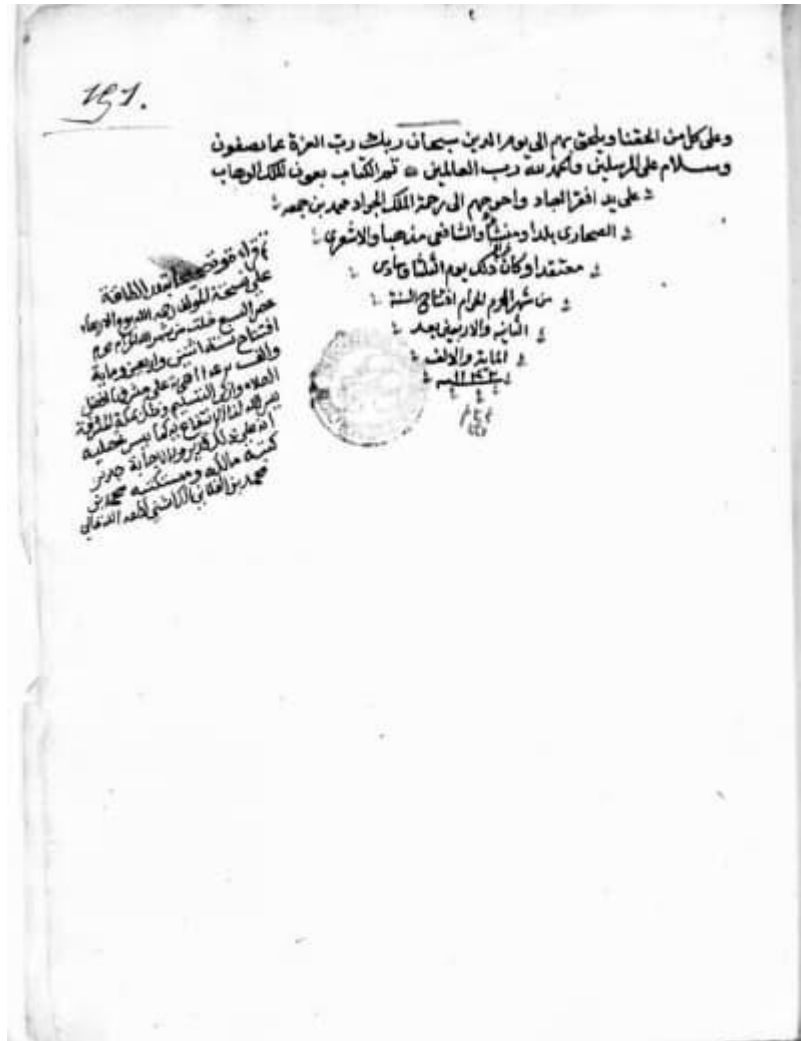 191.
وعلى كل من الحقنا ويلحق بهم الى يوم الدين سبحان ربك ربّ العزة عما يصفون
وسلام على المرسلين والحمد لله رب العالمين تم الكتاب بعون الملك الوهاب
على يد افقر العباد واحوجهم الى رحمة الملك الجواد محمد بن جمعه
بلدا ومنشأ والشافعى مذهبا والاشعرى
معتقدا وكان ذلك يوم الثلثا
من شهر المحرم الحرام افتتاح السنة
الثانيه والاربعين بعد
الماية والالف
١١٤٢
بقدر الطاقة
على نسخة المؤلف رحمه الله يوم الاربعاء
خلت من شهر الله الحرام يوم
افتتاح سنة اثنين واربعين وماية
والف من هجرة من على مشرفها افضل
الصلاه وازكى التسليم
يسر الله لنا الانتفاع به كما يسر تحصيله
انه على ذلك قدير وبالاجابة جدير
كتبه مالكه ومستكتبه محمد بن
محمد بن